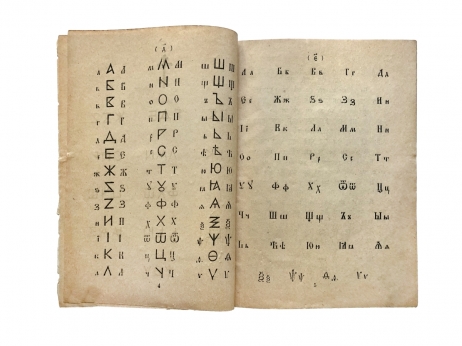 (д҃)
а А а м М м ш Ш ш
б Б б н N н щ Щ щ
в В в о О о ъ Ъ ъ
г Г г п П п ы Ы ы
д Д д р Р р ь Ь ь
е Е е с С с ѣ Ѣ ѣ
ж Ж ж т Т т ю Ю ю
ѕ Ѕ ѕ у У у ꙗ Ꙗ ꙗ
з З з ф Ф ф ѧ Ѧ ѧ
и И и х Х х ѯ Ѯ ѯ
і І і ѿ Ѿ ѿ ѱ Ѱ ѱ
к К к ц Ц ц ѳ Ѳ ѳ
л Л л ч Ч ч ѵ Ѵ ѵ
4
(є҃)
Аа Бб Вв Гг Дд
Єе Жж Ѕѕ Зз Ии
Її Кк Лл Мм Нн
Оо Пп Рр Сс Тт
Ꙋꙋ Фф Хх Ѿѿ Цц
Чч Шш Щщ Ъъ Ыы
Ьь Ѣѣ Юю Ꙗꙗ Ѧѧ
Ѯѯ Ѱѱ Ѳѳ Ѵѵ
5